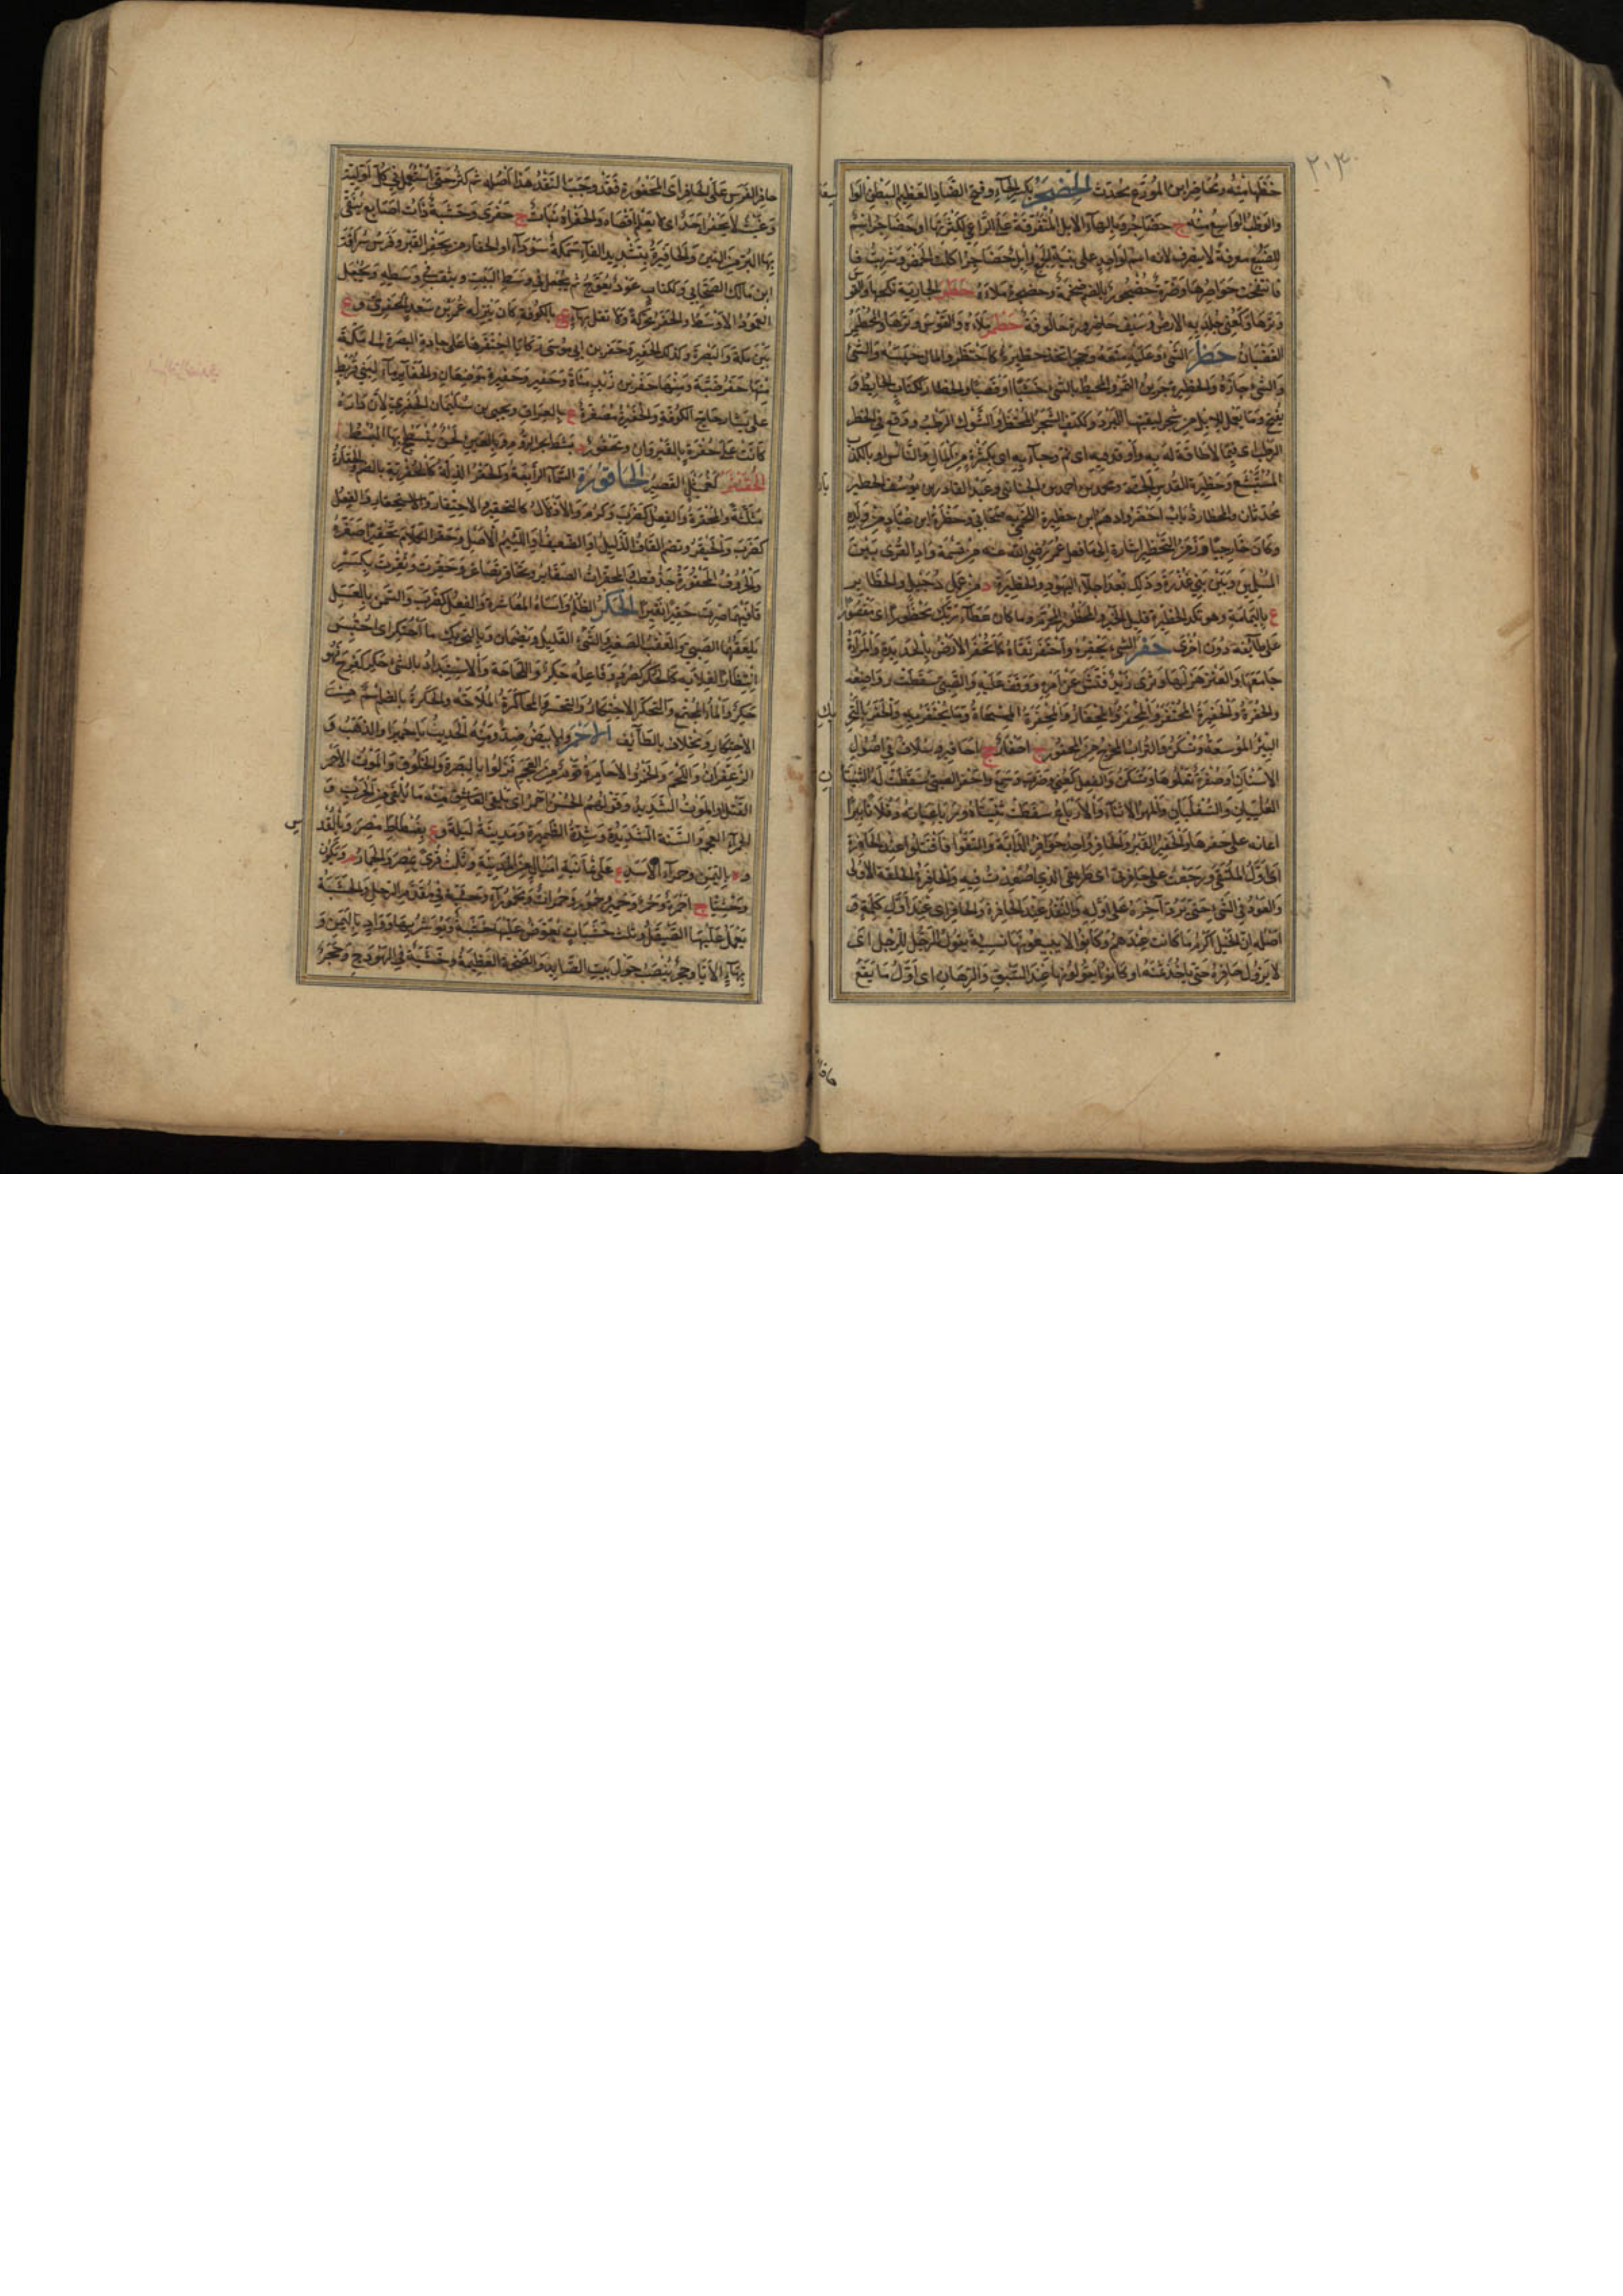 خطها منه ومحاضر ابن المورّع محدّث الحِضَجْر بكسر الحاء وفتح الضاد العظيم البطن الواسعه
والوطب الواسع منه ج حضاجر وبالهاء الابل المتفرقة على الراعي لكثرتها او حضاجر اسم
للضبع معرفة لا ينصرف لانه اسم لواحد على بنية الجمع وابل حضاجر اكلت الحمض وشربت
فانتفخت خواصرها وضرة حضجور بالضم ضخمة وحضجره ملاءه حطر الجارية نكحها والقوس
وترها وكعني جلد به الارض وسيف حاطورة حالوقة حظر ملاءه والقوس وترها والحظر
الغضبان حظر الشئ وعليه منعه وحجر اتخذ حظيرة كاحتظر والمال حبسه والشئ
والشئ حازه والحظيرة جرين التمر والمحيط بالشئ خشبا او قصبا والحظار ككتاب الحايط و
يفتح وما يعمل للابل من شجر ليقيها البرد وككتف الشجر المحتظر او الشوك الرطب ووقع في الحظر
الرطب اى فيما لا طاقة له به واوقد فيه اى نمّ وجاء به اى بكثرة من المال والناس او بالكذب
المستشنع وحظيرة القدس الجنة ومحمد بن احمد بن الجبائي وعبد القادر بن يوسف الحظيري
محدثان والحظارة ذباب اخضر وادهم بن حظيرة اللخمي صحابي وحظرة ابن عباد من ولده
وكان خارجيا وزمن التحظير اشارة الى ما فعل عمر رضي الله عنه من قسمة وادى القرى بين
المسلمين وبين بني عذرة وذلك بعد اجلاء اليهود والحظيرة د من عمل دجيل والحظاير
ع باليمامة وهو نكد الحظيرة قليل الخير والمحظور المحرم وما كان عطاء ربك محظورا اى مقصورا
على طايفة دون اخرى حفر الشئ يحفره واحتفره نقاه كما تحفر الارض بالحديدة والمرأة
جامعها والعنز هزلها وثرى زيد فتش عن امره ووقف عليه والصبي سقطت رواضعه
والحفرة والحفيرة المحتفر والمحفر والمحفار والمحفرة المسحاة وما يحتفر به والحفر بالتحريك
البئر الموسعة ويسكن والتراب المخرج من المحفور ج احفار جج احافير وسلاق في اصول
الاسنان او صفرة تعلوها ويسكن والفعل كعني وضرب وسمع واحفر الصبي سقطت له الثنيتان
العلييان والسفليان والمهر للاثناء والارباع سقطت ثناياه ورباعياته وفلانا بئرا
اعانه على حفرها والحفير القبر والحافر واحد حوافر الدابة والتقوا فاقتتلوا عند الحافرة
اى اول الملتقى ورجعت على حافرتي اى طريقي الذي اصعدت فيه والحافرة الخلقة الاولى
والعود في الشئ حتى يرد آخره على اوله والنقد عند الحافرة والحافر اى عند اول كلمة و
اصله ان الخيل اكرم ما كانت عندهم وكانوا لا يبيعونها نسية يقول الرجل للرجل اى
لا يزول حافره حتى ياخذ ثمنه او كانوا يقولونها عند السبق والرهان اى اول ما يقع
حافر
حافر الفرس على الحافر اى المحفورة فقد وجب النقد هذا اصله ثم كثر حتى استعمل في كل اولية
وغيث لا يحفره احد اى لا يعلم اقصاه والحفراة نبات ج حفرى وخشبة ذات اصابع ينقى
بها البر من التبن والحافيرة بتشديد الفاء سمكة سوداء والحفار من يحفر القبر وفرس سراقة
ابن مالك الصحابي وككتاب عود يعوج ثم يجعل في وسط البيت ويثقب في وسطه ويجعل
العمود الاوسط والحفر محركة ولا تقل بهاء ع بالكوفة كان ينزله عمر بن سعد الحفري و ع
بين مكة والبصرة وكذلك الحفير وحفر ابي موسى ركايا احتفرها على جادة البصرة الى مكة
منها حفر ضبة ومنها حفر بن زيد مناة وحفير وحفيرة موضعان والحفاير ماء لبني قريط
على يسار حاج الكوفة والحفيرة مصغرة ع بالعراق ويحيى بن سليمان الحفري لان داره
كانت على حفرة بالقيروان ومحفور د بشط بحر الروم وبالعين لحن ينسج بها البسط
الحفيتر كعميثل القصير الحاقورة السماء الرابعة والحقر الذلة كالحقرية بالضم والحقارة
مثلثة والمحقرة والفعل كضرب وكرم والاذلال كالتحقير والاحتقار والاستحقار والفعل
كضرب والحيقر وتضم القاف الذليل او الضعيف او اللئيم الاصل وحقر الكلام تحقيرا صغره
والحروف المحقورة جد قطب المحقرات الصغاير وتحاقر تصاغر وحقرت ونقرت بكسر
قافيهما صرت حقيرا نقيرا الحكر الظلم واساءة المعاشرة والفعل كضرب والسمن بالعسل
يلعقهما الصبي والقعب الصغير والشئ القليل ويضمان وبالتحريك ما احتكر اى احتبس
انتظارا لغلائه كالحكر كصرد وفاعله حكر واللجاجة والاستبداد بالشئ حكر كفرح فهو
حكر والماء المجتمع والتحكر الاحتكار والتحسر والمحاكرة الملاحة والحكرة بالضم اسم من
الاحتكار ومخلاف بالطائف الاحمر والابيض ضد ومنه الحديث يا حميرا والذهب و
الزعفران واللحم والخمر والاحامرة قوم من العجم نزلوا بالبصرة والخلوق والموت الاحمر
القتل او الموت الشديد وقولهم الحسن احمر اى يلقى العاشق منه ما يلقى من الحرب و
الحمراء العجم والسنة الشديدة وشدة الظهيرة ومدينة لبلة و ع بفسطاط مصر وبالقدس
و ة باليمن وحمراء الاسد ع على ثمانية اميال من المدينة وثلث قرى بمصر والحمار م ويكون
وحشيا ج احمرة وحمر وحمير وحمور وحمرات ومحموراء وخشبة في مقدم الرحل والخشبة
يعمل عليها الصيقل وثلث خشبات تعرض عليها خشبة وتوسر بها وواد باليمن و
بهاء الاتان وحجر ينصب حول بيت الصايد والصخرة العظيمة وخشبة في الهودج وحجر